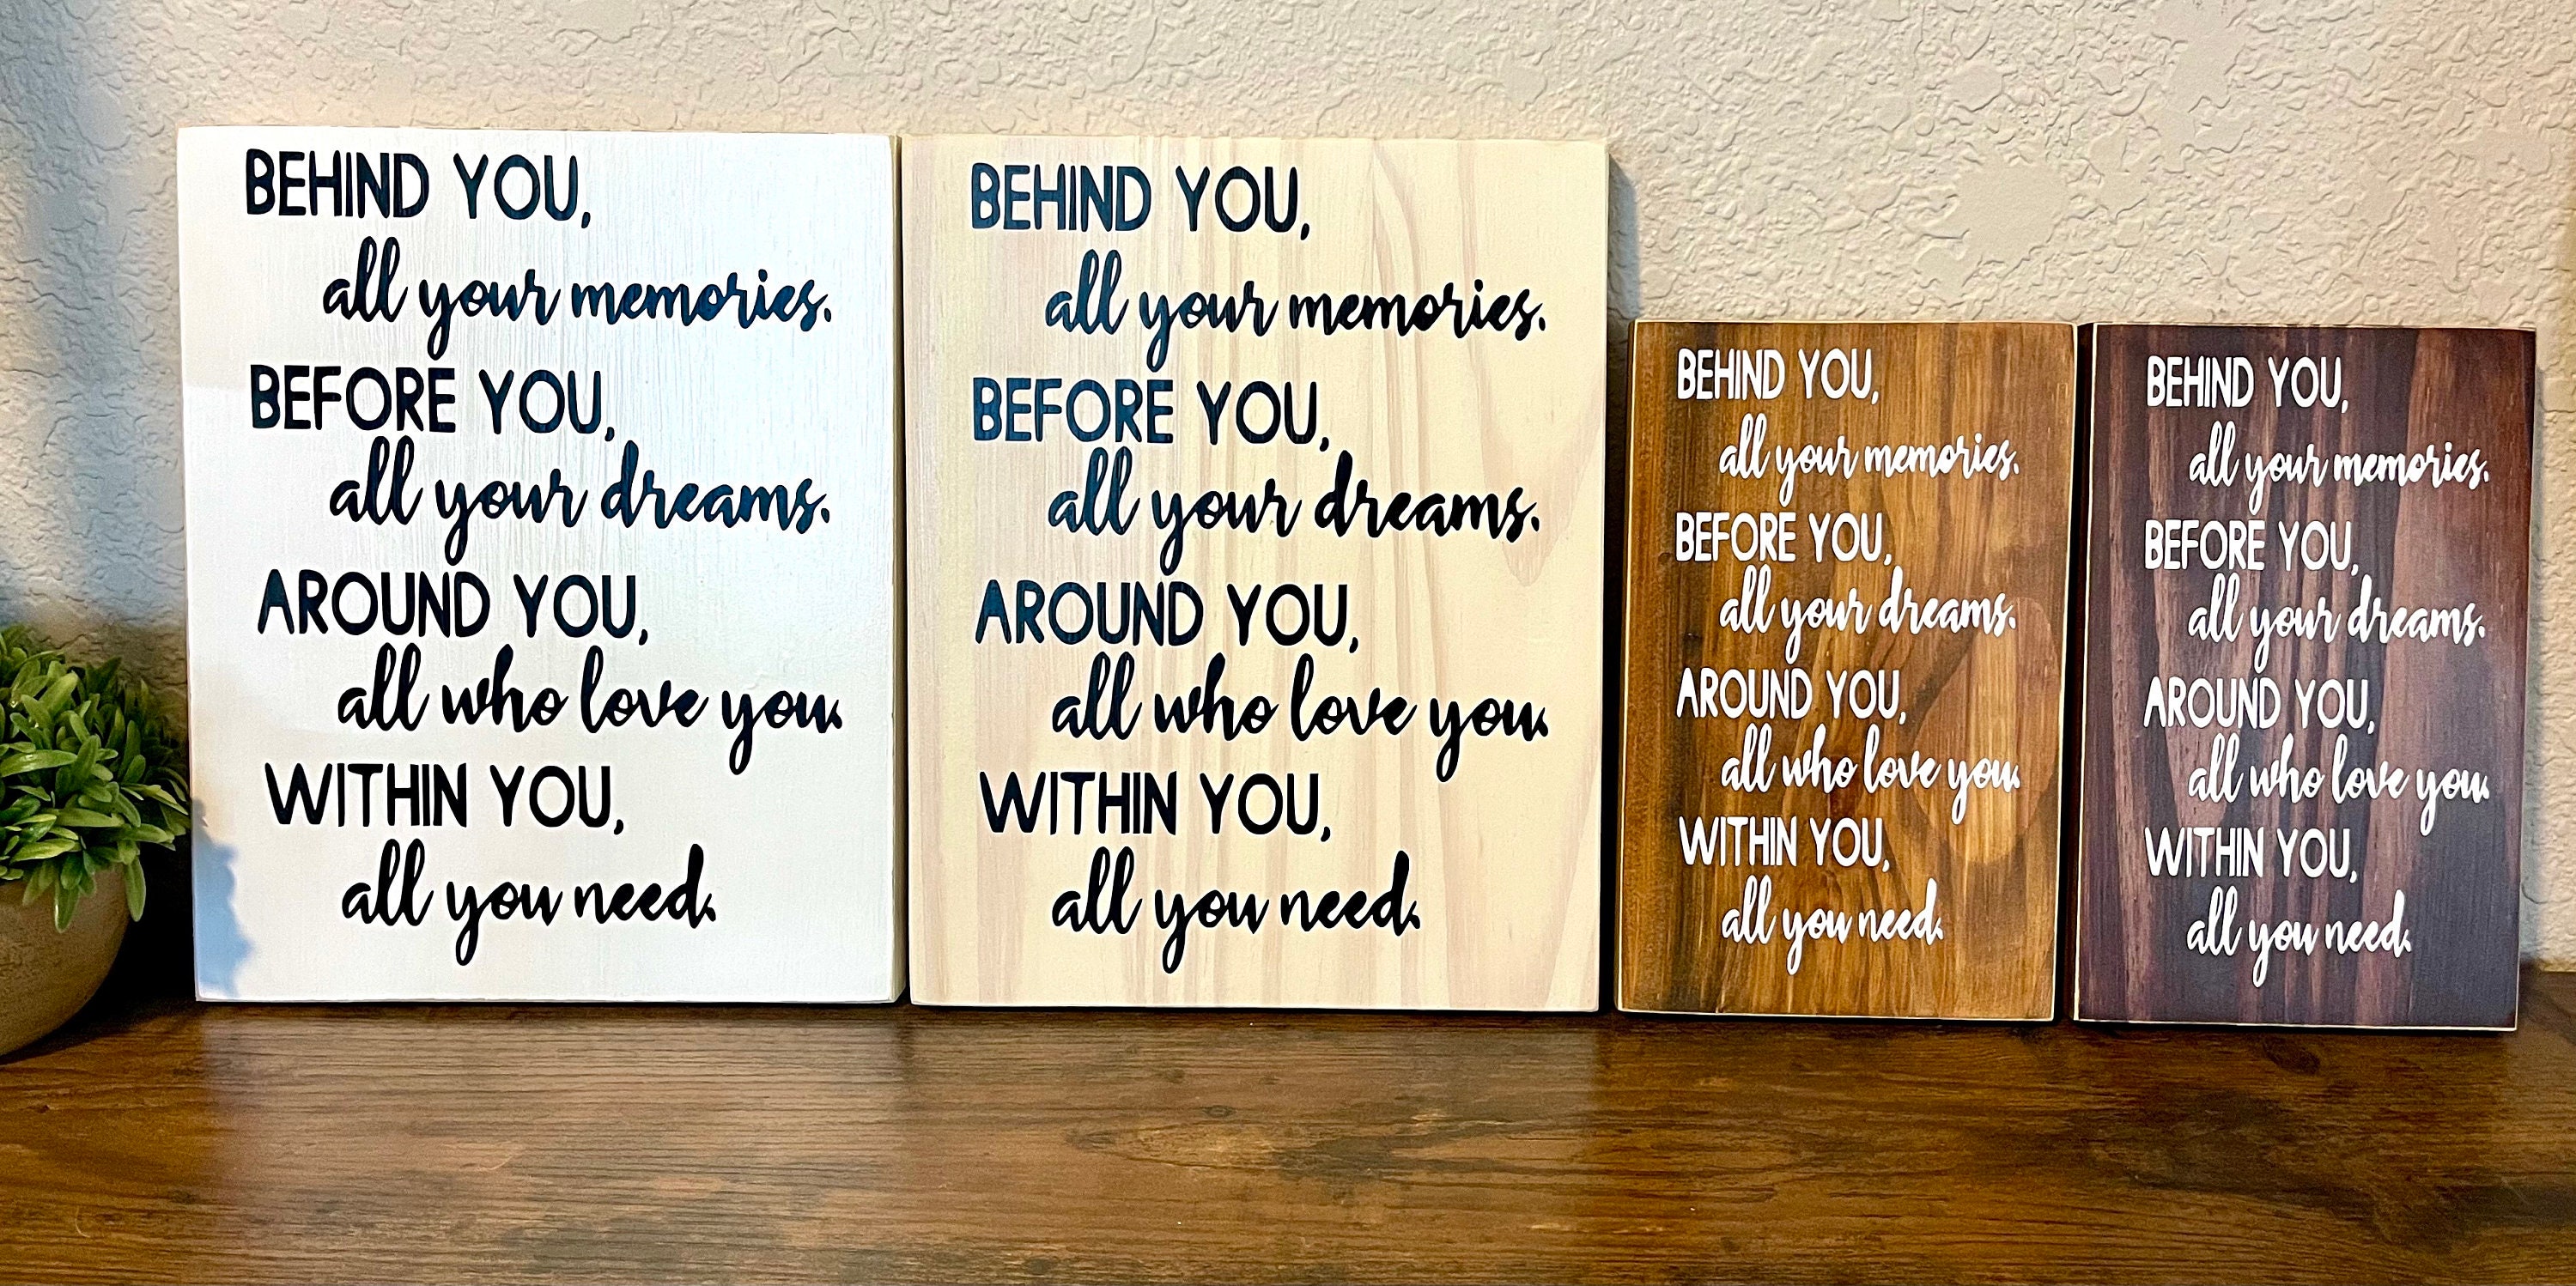 BEHIND YOU,
all your memories.
BEFORE YOU,
all your dreams.
AROUND YOU,
all who love you.
WITHIN YOU,
all you need.
BEHIND YOU,
all your memories.
BEFORE YOU,
all your dreams.
AROUND YOU,
all who love you.
WITHIN YOU,
all you need.
BEHIND YOU,
all your memories.
BEFORE YOU,
all your dreams.
AROUND YOU,
all who love you.
WITHIN YOU,
all you need.
BEHIND YOU,
all your memories.
BEFORE YOU,
all your dreams.
AROUND YOU,
all who love you.
WITHIN YOU,
all you need.